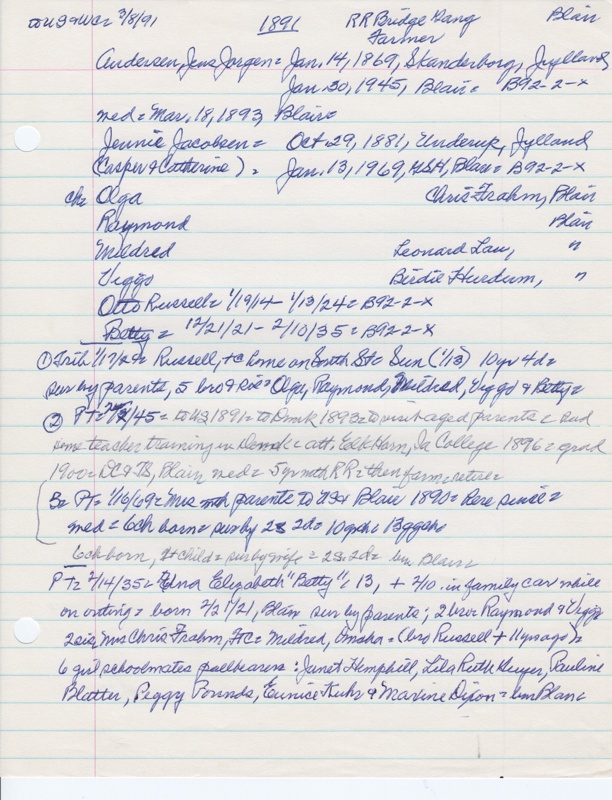 to US & WC 3/8/91 1891 RR Bridge Gang Blair
Farmer
Andersen, Jens Jorgen = Jan. 14, 1869, Skanderborg, Jylland
Jan. 30, 1945, Blair = B92-2-X
med = Mar. 18, 1893, Blair =
Jennie Jacobsen = Oct. 29, 1881, Underup, Jylland
(Casper & Catherine) = Jan. 13, 1969, Blair = B92-2-X
ch = Olga Chris Frahm, Blair
Raymond Blair
Mildred Leonard Lau, "
Viggo Birdie Hurdum, "
Otto Russell = 1/19/14 - 1/13/24 = B92-2-X
Betty = 12/21/21 - 2/10/35 = B92-2-X
① Trib 1/17/24 = Russell, + @ home on South St = Sun (1/13) 10 yr 4 d =
sur by parents, 5 bro & sis = Olga, Raymond, Mildred, Viggo & Betty =
② PT = /45 = to US 1891 = to Dmk 1893 = to visit aged parents = had
some teacher training in Denmk = att. Elk Horn, Ia College 1896 = grad
1900 = DC & TS, Blair med = 5 yr with RR = then farm = retire =
3 = PT = 1/16/69 = Mrs with parents to US & Blair 1890 = Here since =
med = 6 ch born = sur by 2s 2d = 10 gch = 13 ggch =
6 ch born, + child = sur by wife = 2s. 2d = bur Blair =
PT = 2/14/35 = Edna Elizabeth "Betty" = 13, + 2/10. in family car while
on outing = born 2/21/21, Blair sur by parents; 2 bro = Raymond & Viggo
2 sis, Mrs Chris Frahm, FC = Mildred, Omaha = (bro Russell + 11 yrs ago) =
6 girl schoolmates pallbearers: Janet Hemphill, Lila Ruth Guyer, Pauline
Blatter, Peggy Pounds, Eunice Kuhr & Maxine Dixon = bur Blair =